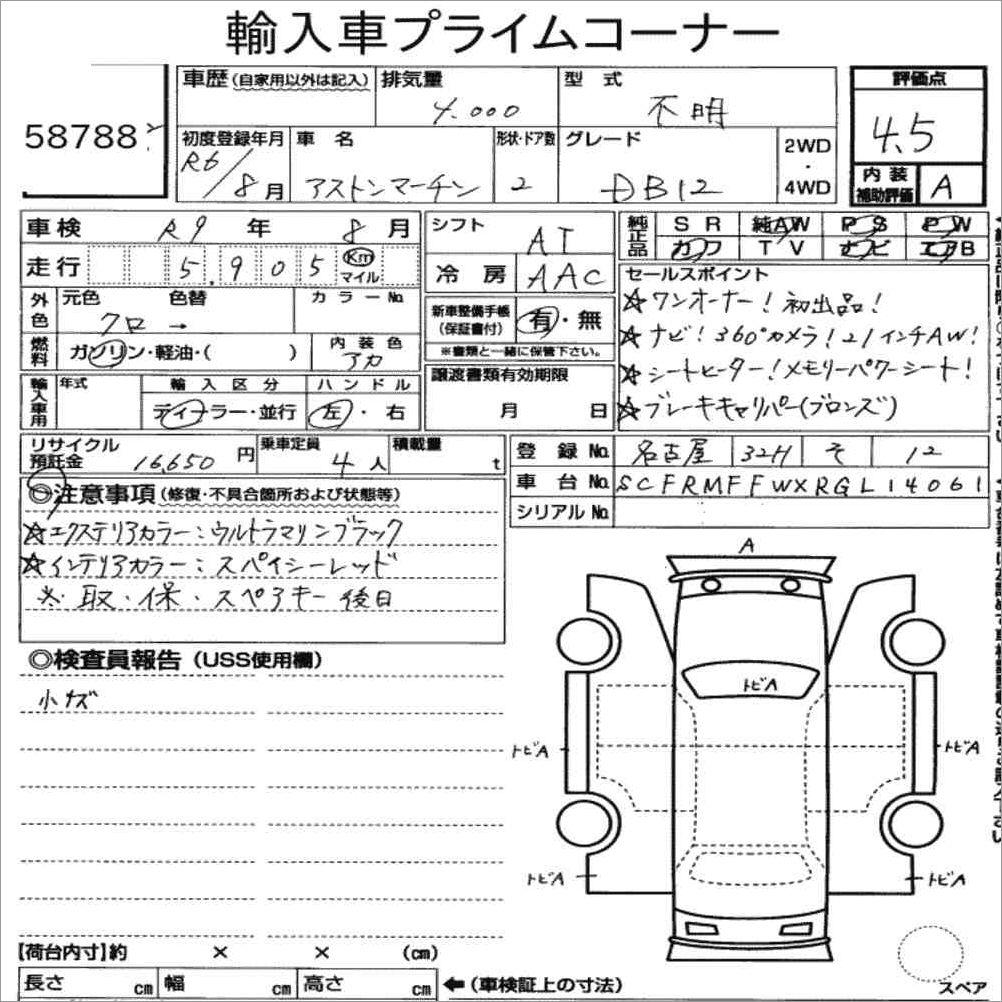 輸入車プライムコーナー
58788
車歴(自家用以外は記入)
排気量
4.000
型式
不明
評価点
4.5
初度登録年月
R6/8月
車名
アストンマーチン
形状・ドア数
2
グレード
DB12
2WD
・
4WD
内装
補助評価
A
車検 R9年 8月
走行 5,905 Km マイル
外色 元色 色替 カラーNo.
クロ →
燃料 ガソリン・軽油・( )
内装色
アカ
輸入車用 年式 輸入区分 ハンドル
ディーラー・並行 左・右
シフト AT
冷房 AAC
新車整備手帳
(保証書付) 有・無
※書類と一緒に保管下さい。
譲渡書類有効期限
月 日
純正品 SR 純AW PS PW
カワ TV ナビ エアB
セールスポイント
☆ワンオーナー!初出品!
☆ナビ!360°カメラ!21インチAW!
☆シートヒーター!メモリーパワーシート!
☆ブレーキキャリパー(ブロンズ)
リサイクル
預託金 16,650円
乗車定員 4人
積載量 t
登録No. 名古屋 32H そ 12
車台No. SCFRMFFWXRGL14061
シリアルNo.
◎注意事項(修復・不具合箇所および状態等)
☆エクステリアカラー:ウルトラマリンブラック
☆インテリアカラー:スパイシーレッド
※取・保・スペアキー後日
◎検査員報告(USS使用欄)
小キズ
A
トビA
トビA
トビA
トビA
トビA
【荷台内寸】約 × × (cm)
長さ cm 幅 cm 高さ cm ←(車検証上の寸法)
スペア